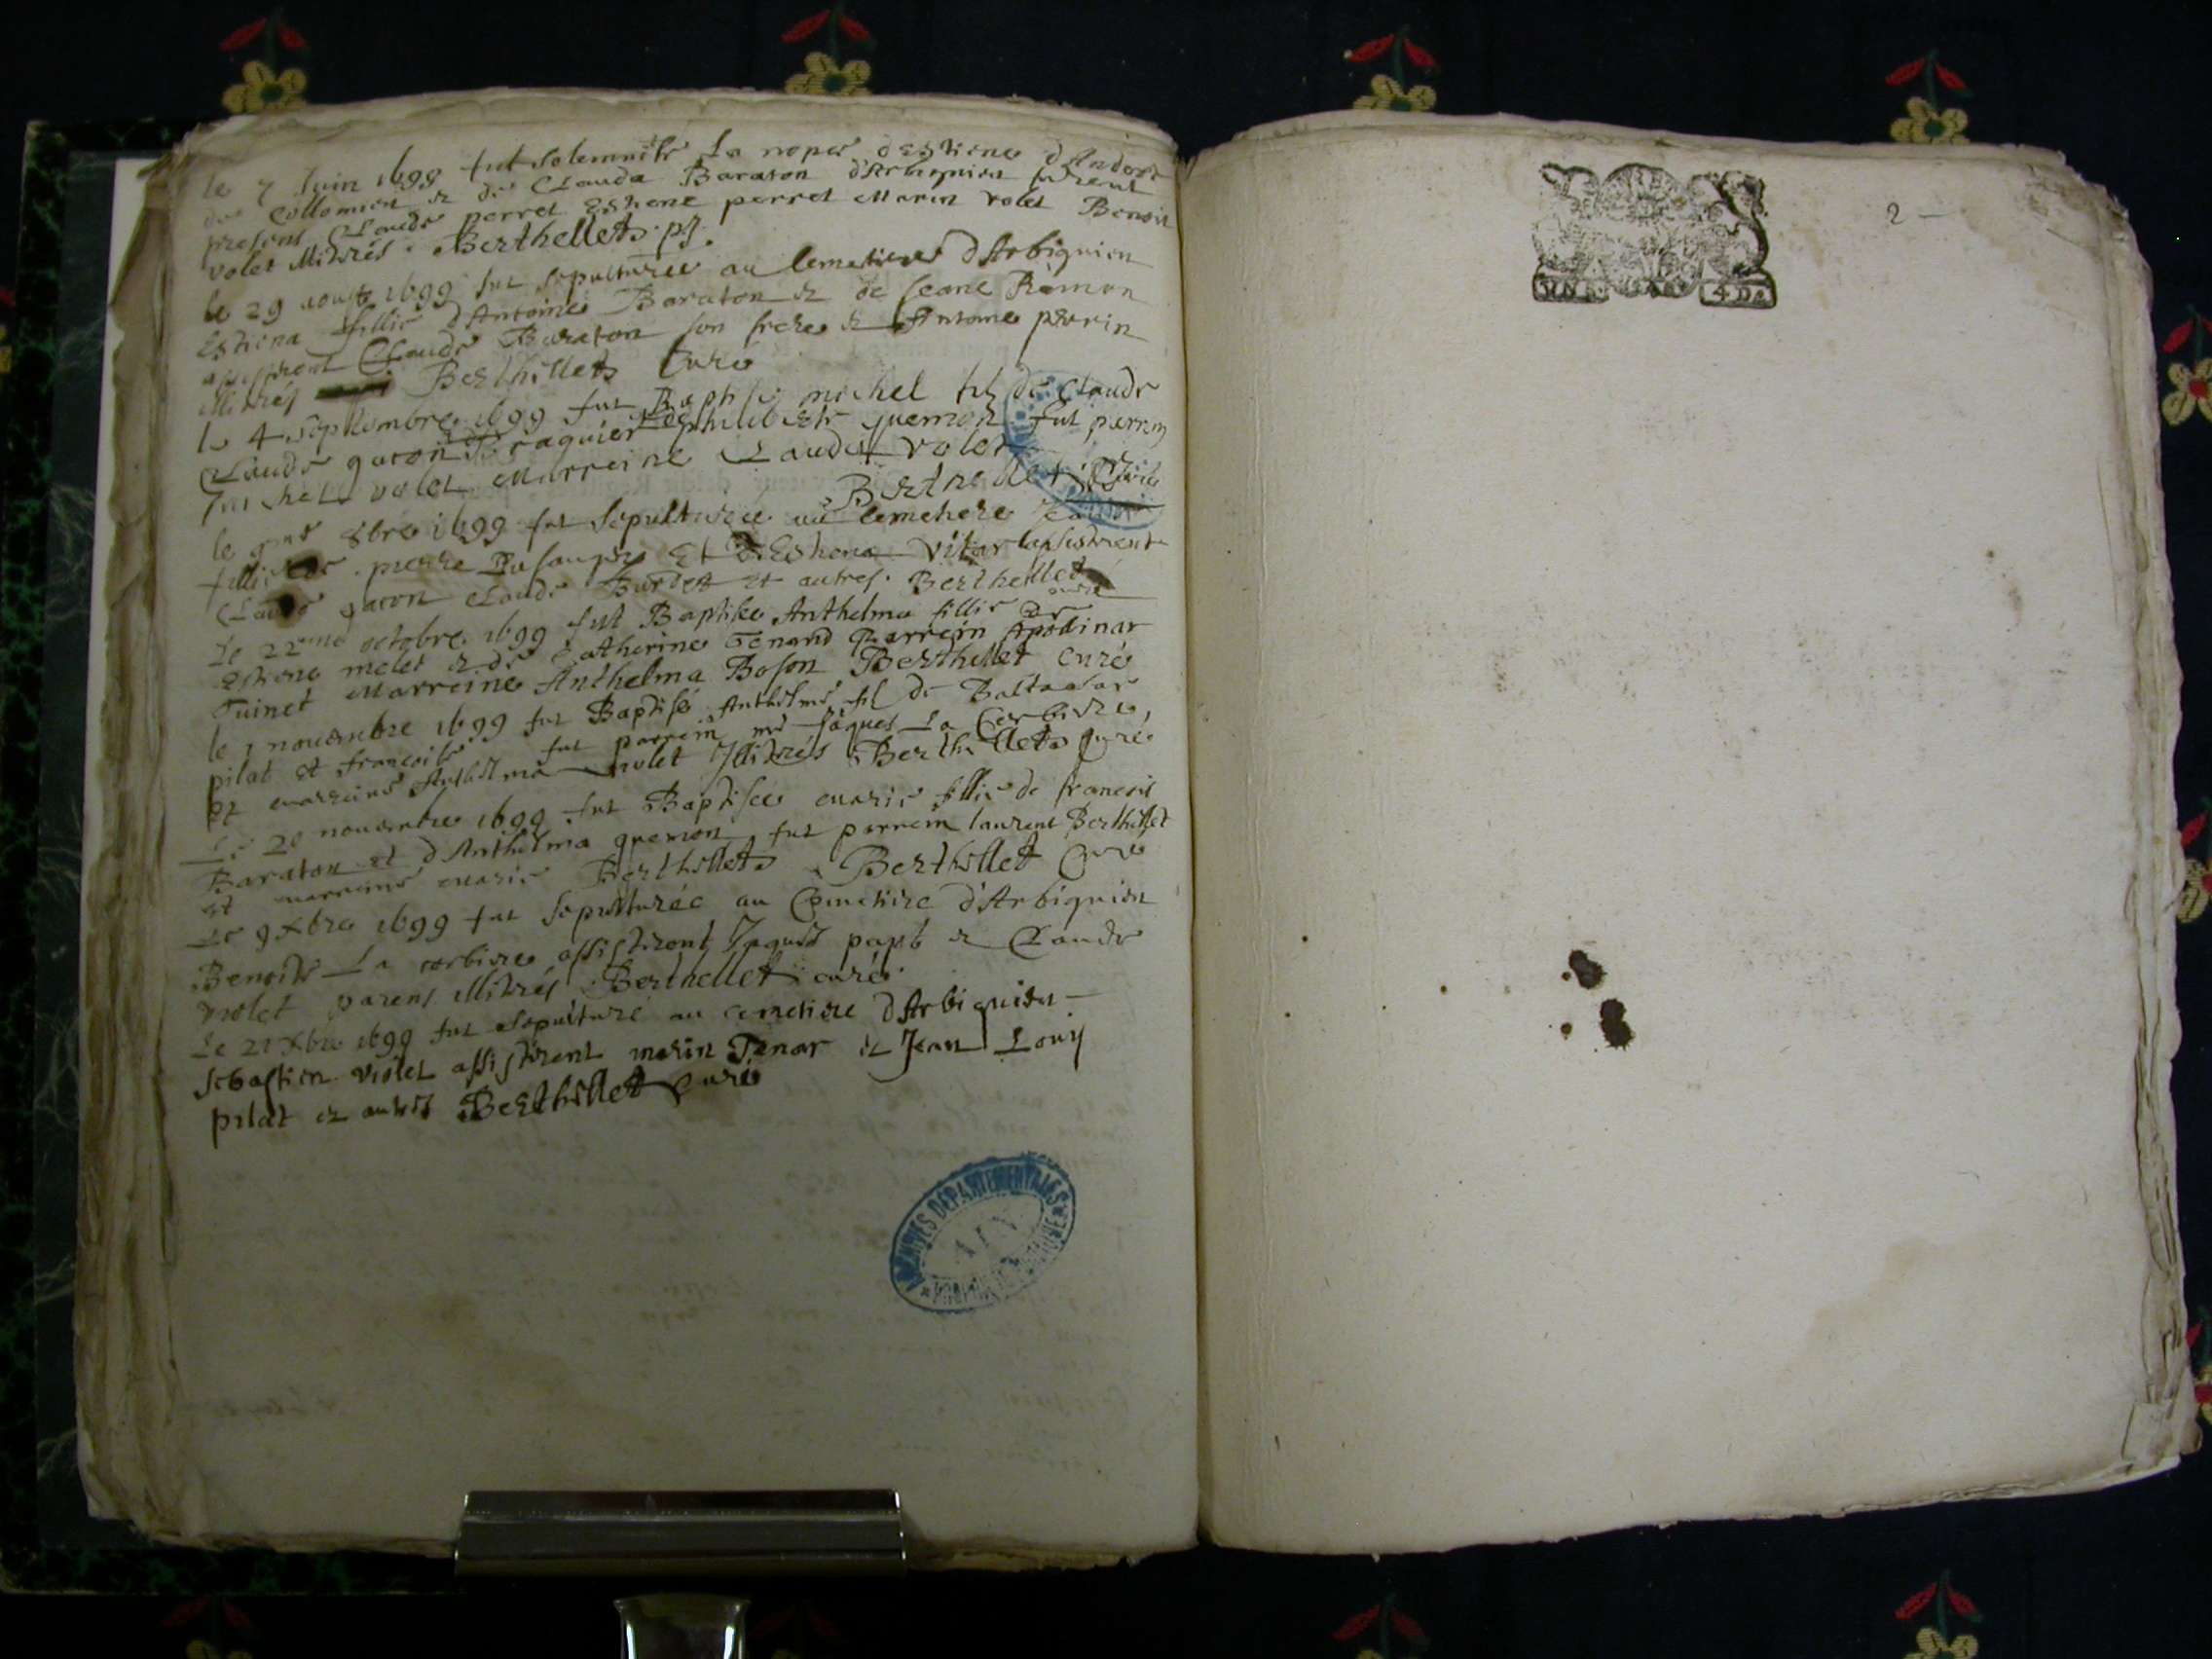 le 7 Juin 1699 fut solemnise La nopce d'Estiene d'Andert
de Collomieu et de Clauda Baraton d'Arbignieu furent
presens Claude perret Estiene perret Marin volet Benoit
volet illitrés. Berthellet p.
le 29 aoust 1699 fut sepulturée au Cemetiere d'Arbignieu
Estiena fillie d'Antoine Baraton et de Jeane Rämon
Claude Baraton son frere et Antoine perrin
illitrés Berthillet Curé
le 4 septembre 1699 fut Baptisé michel fil de Claude
Claude gacon philiberte quemon fut parrin
michel volet Marreine Claude volet
Berthellet Curé
le 8bre 1699 fut sepulturée au cemetiere
fillie de pierre et d'Estiena
Claude gacon Claude Burlet et autres. Berthellet
curé
Le 22eme octobre 1699 fut Baptisée Anthelma fillie de
Estiene melet et de Catherine Tenand Parrein Apolinar
Tuinet Marreine Anthelma Boson Berthellet curé
le 1 novembre 1699 fut Baptisé Anthelme fil de Baltasar
pilat et francoise fut parrein me Jaques La Corbiere,
et marreine Anthelma violet Illitrés Berthillet Curé
Le 20 novembre 1699 fut Baptisée marie fillie de francois
Baraton et d'Anthelma quemon, fut parrein laurent Berthillet
et marreine marie Berthillet. Berthillet Curé
Le 9 Xbre 1699 fut sepulturée au Cemetiere d'Arbignieu
Benoite La corbiere assistront Jaques papet et Claude
violet parens illitrés Berthellet curé
Le 21 Xbre 1699 fut sepulturé au cemetiere d'Arbignieu
sebastien violet assistirent marin Tenar et Jean Louy
pilat et autres Berthillet Curé
ARCHIVES DÉPARTEMENTALES
AIN
2 -
UN
4 De